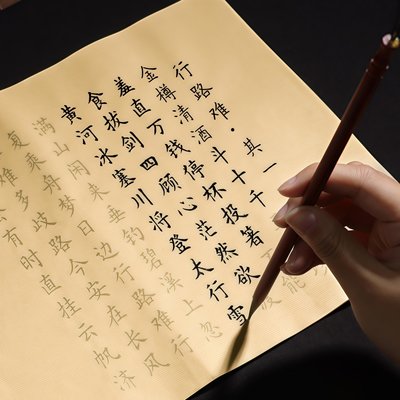 行路难·其一
金樽清酒斗十千
羞直万钱停杯投箸不能
食拔剑四顾心茫然欲渡
黄河冰塞川将登太行雪
满山闲来垂钓碧溪上忽
复乘舟梦日边行路难行
难多歧路今安在长风
有时直挂云帆济